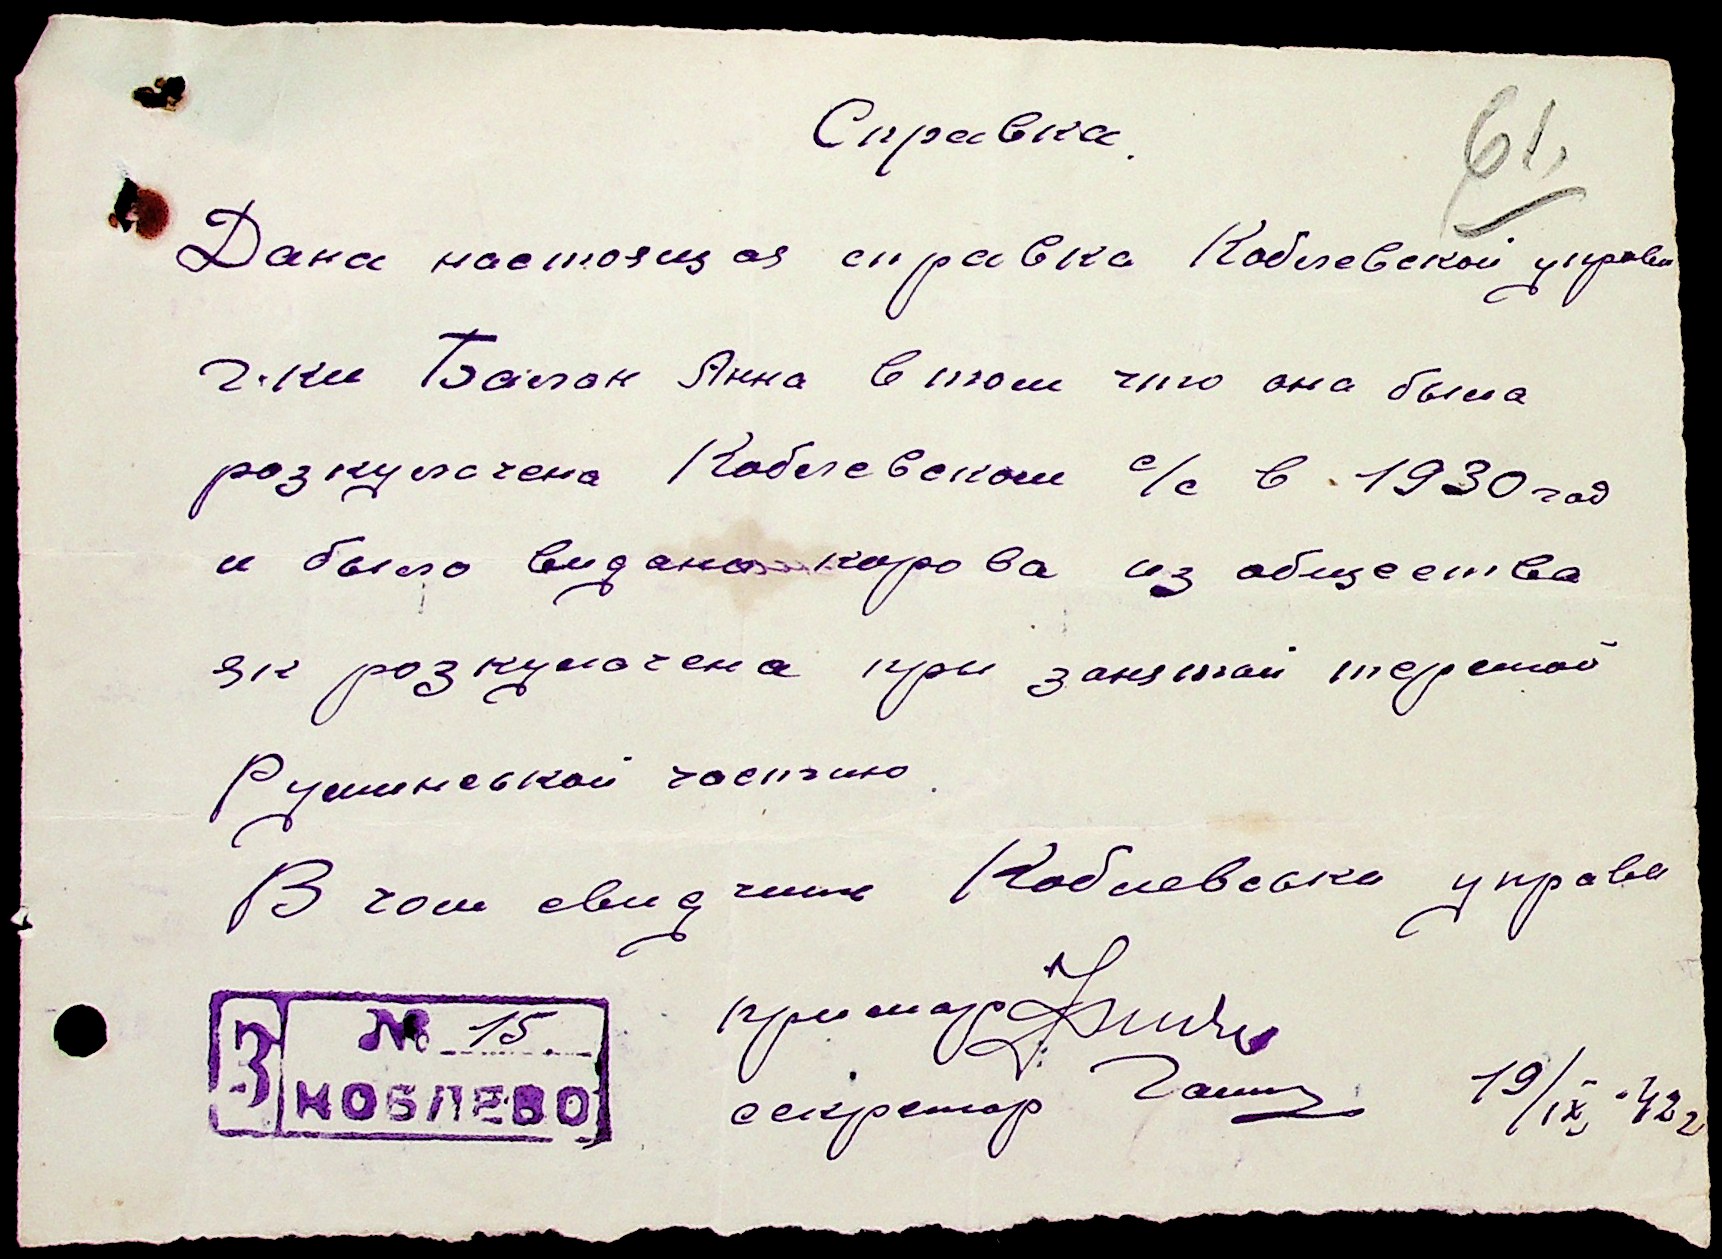 Справка.
61.
Дана настоящая справка Коблевской управи
г-ки Балан Анна в том что она была
розкулачена Коблевском с/с в 1930 год
и было видано корова из общества
як розкулачена при занятой терет
Руминськой частию.
В чом свидчить Коблевська управа
примар
секретар
19/IX-42 г
З № 15
КОБЛЕВО